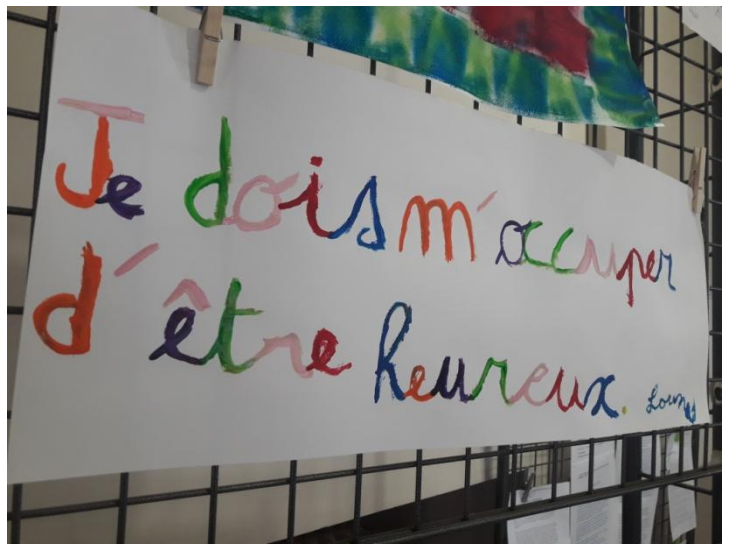 Je dois m'occuper
d'être heureux.
Lounes